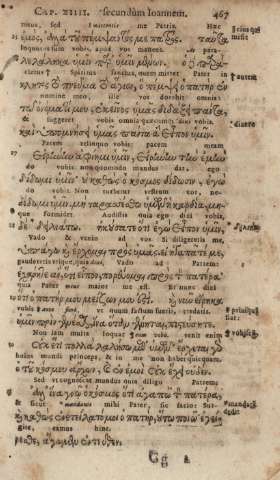 CAP. XIIII. secundum Ioannem. 467
meus, sed mittentis me Patris. Hæc
ἐμὸς, ἀλλὰ τοῦ πέμψαντός με πατρός. ταῦτα
loquutus sum vobis, apud vos manens.
λελάληκα ὑμῖν παρ' ὑμῖν μένων. ὁ
Spiritus, quem mittet Pater in
κλητος τὸ πνεῦμα τὸ ἅγιον, ὃ πέμψει ὁ πατὴρ ἐν
nomine meo, ille vos docebit omnia
τῷ ὀνόματί μου, ἐκεῖνος ὑμᾶς διδάξει πάντα,
& suggeret vobis omnia quæcunque vobis.
καὶ ὑπομνήσει ὑμᾶς πάντα ἃ εἶπον ὑμῖν.
Pacem relinquo vobis: pacem meam
Εἰρήνην ἀφίημι ὑμῖν, εἰρήνην τὴν ἐμὴν
do vobis: non quomodo mundus dat, ego
δίδωμι ὑμῖν· οὐ καθὼς ὁ κόσμος δίδωσιν, ἐγὼ
do vobis. Non turbetur vestrum cor, ne-
δίδωμι ὑμῖν. μὴ ταρασσέσθω ὑμῶν ἡ καρδία, μη-
que formidet. Audistis quia ego dixi vobis,
δὲ δειλιάτω. ἠκούσατε ὅτι ἐγὼ εἶπον ὑμῖν,
Vado & venio ad vos. Si diligeretis me,
ὑπάγω καὶ ἔρχομαι πρὸς ὑμᾶς. εἰ ἠγαπᾶτέ με,
gauderetis utique, quia dixi, Vado ad Patrem:
ἐχάρητε ἂν, ὅτι εἶπον, πορεύομαι πρὸς τὸν πατέρα·
quia Pater meus maior me est. Et nunc dixi
ὅτι ὁ πατήρ μου μείζων μου ἐστί. καὶ νῦν εἴρηκα
vobis fieri, vt quum factum fuerit, credatis.
ὑμῖν πρὶν γενέσθαι, ἵνα ὅταν γένηται, πιστεύσητε.
Non iam multa loquar vobiscum: venit enim
Οὐκ ἔτι πολλὰ λαλήσω μεθ' ὑμῶν· ἔρχεται γὰρ
huius mundi princeps, & in me non habet quicquam.
ὁ τοῦ κόσμου ἄρχων, καὶ ἐν ἐμοὶ οὐκ ἔχει οὐδέν.
Sed vt cognoscat mundus quia diligo Patrem:
ἀλλ' ἵνα γνῷ ὁ κόσμος ὅτι ἀγαπῶ τὸν πατέρα,
& sicut mihi Pater, sic facio: Sur-
καὶ καθὼς ἐνετείλατό μοι ὁ πατὴρ, οὕτω ποιῶ. ἐγεί-
gite, eamus hinc.
ρεσθε, ἄγωμεν ἐντεῦθεν.
Gg